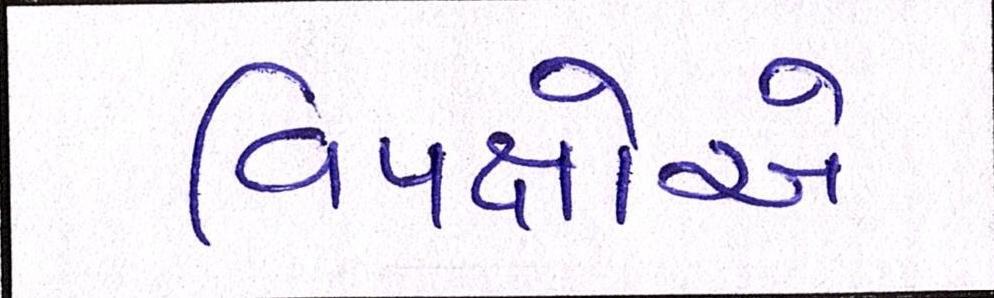 વિપક્ષોએ